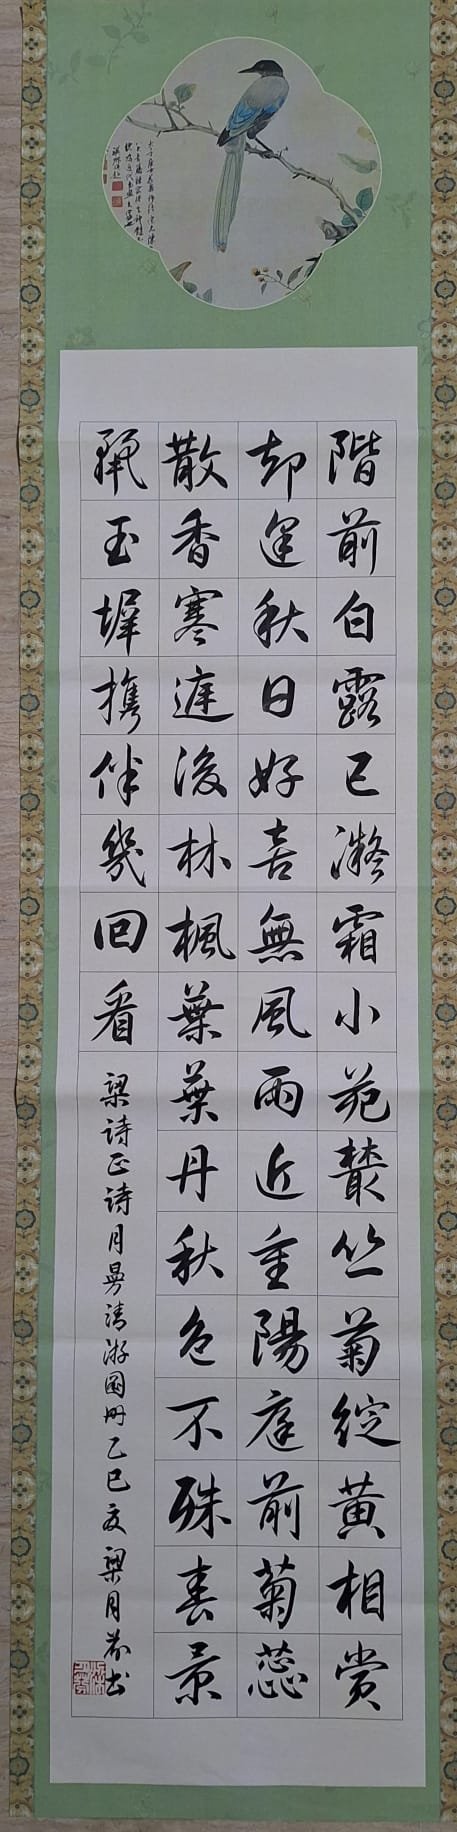 階前白露已凝霜小苑叢丛菊綻黃相賞
却逢秋日好喜無風雨近重陽庭前菊蕊
散香寒庭後林楓葉葉丹秋色不殊春景
麗玉墀携伴幾回看
梁詩正詩月曼清游圖册乙巳夏梁月书